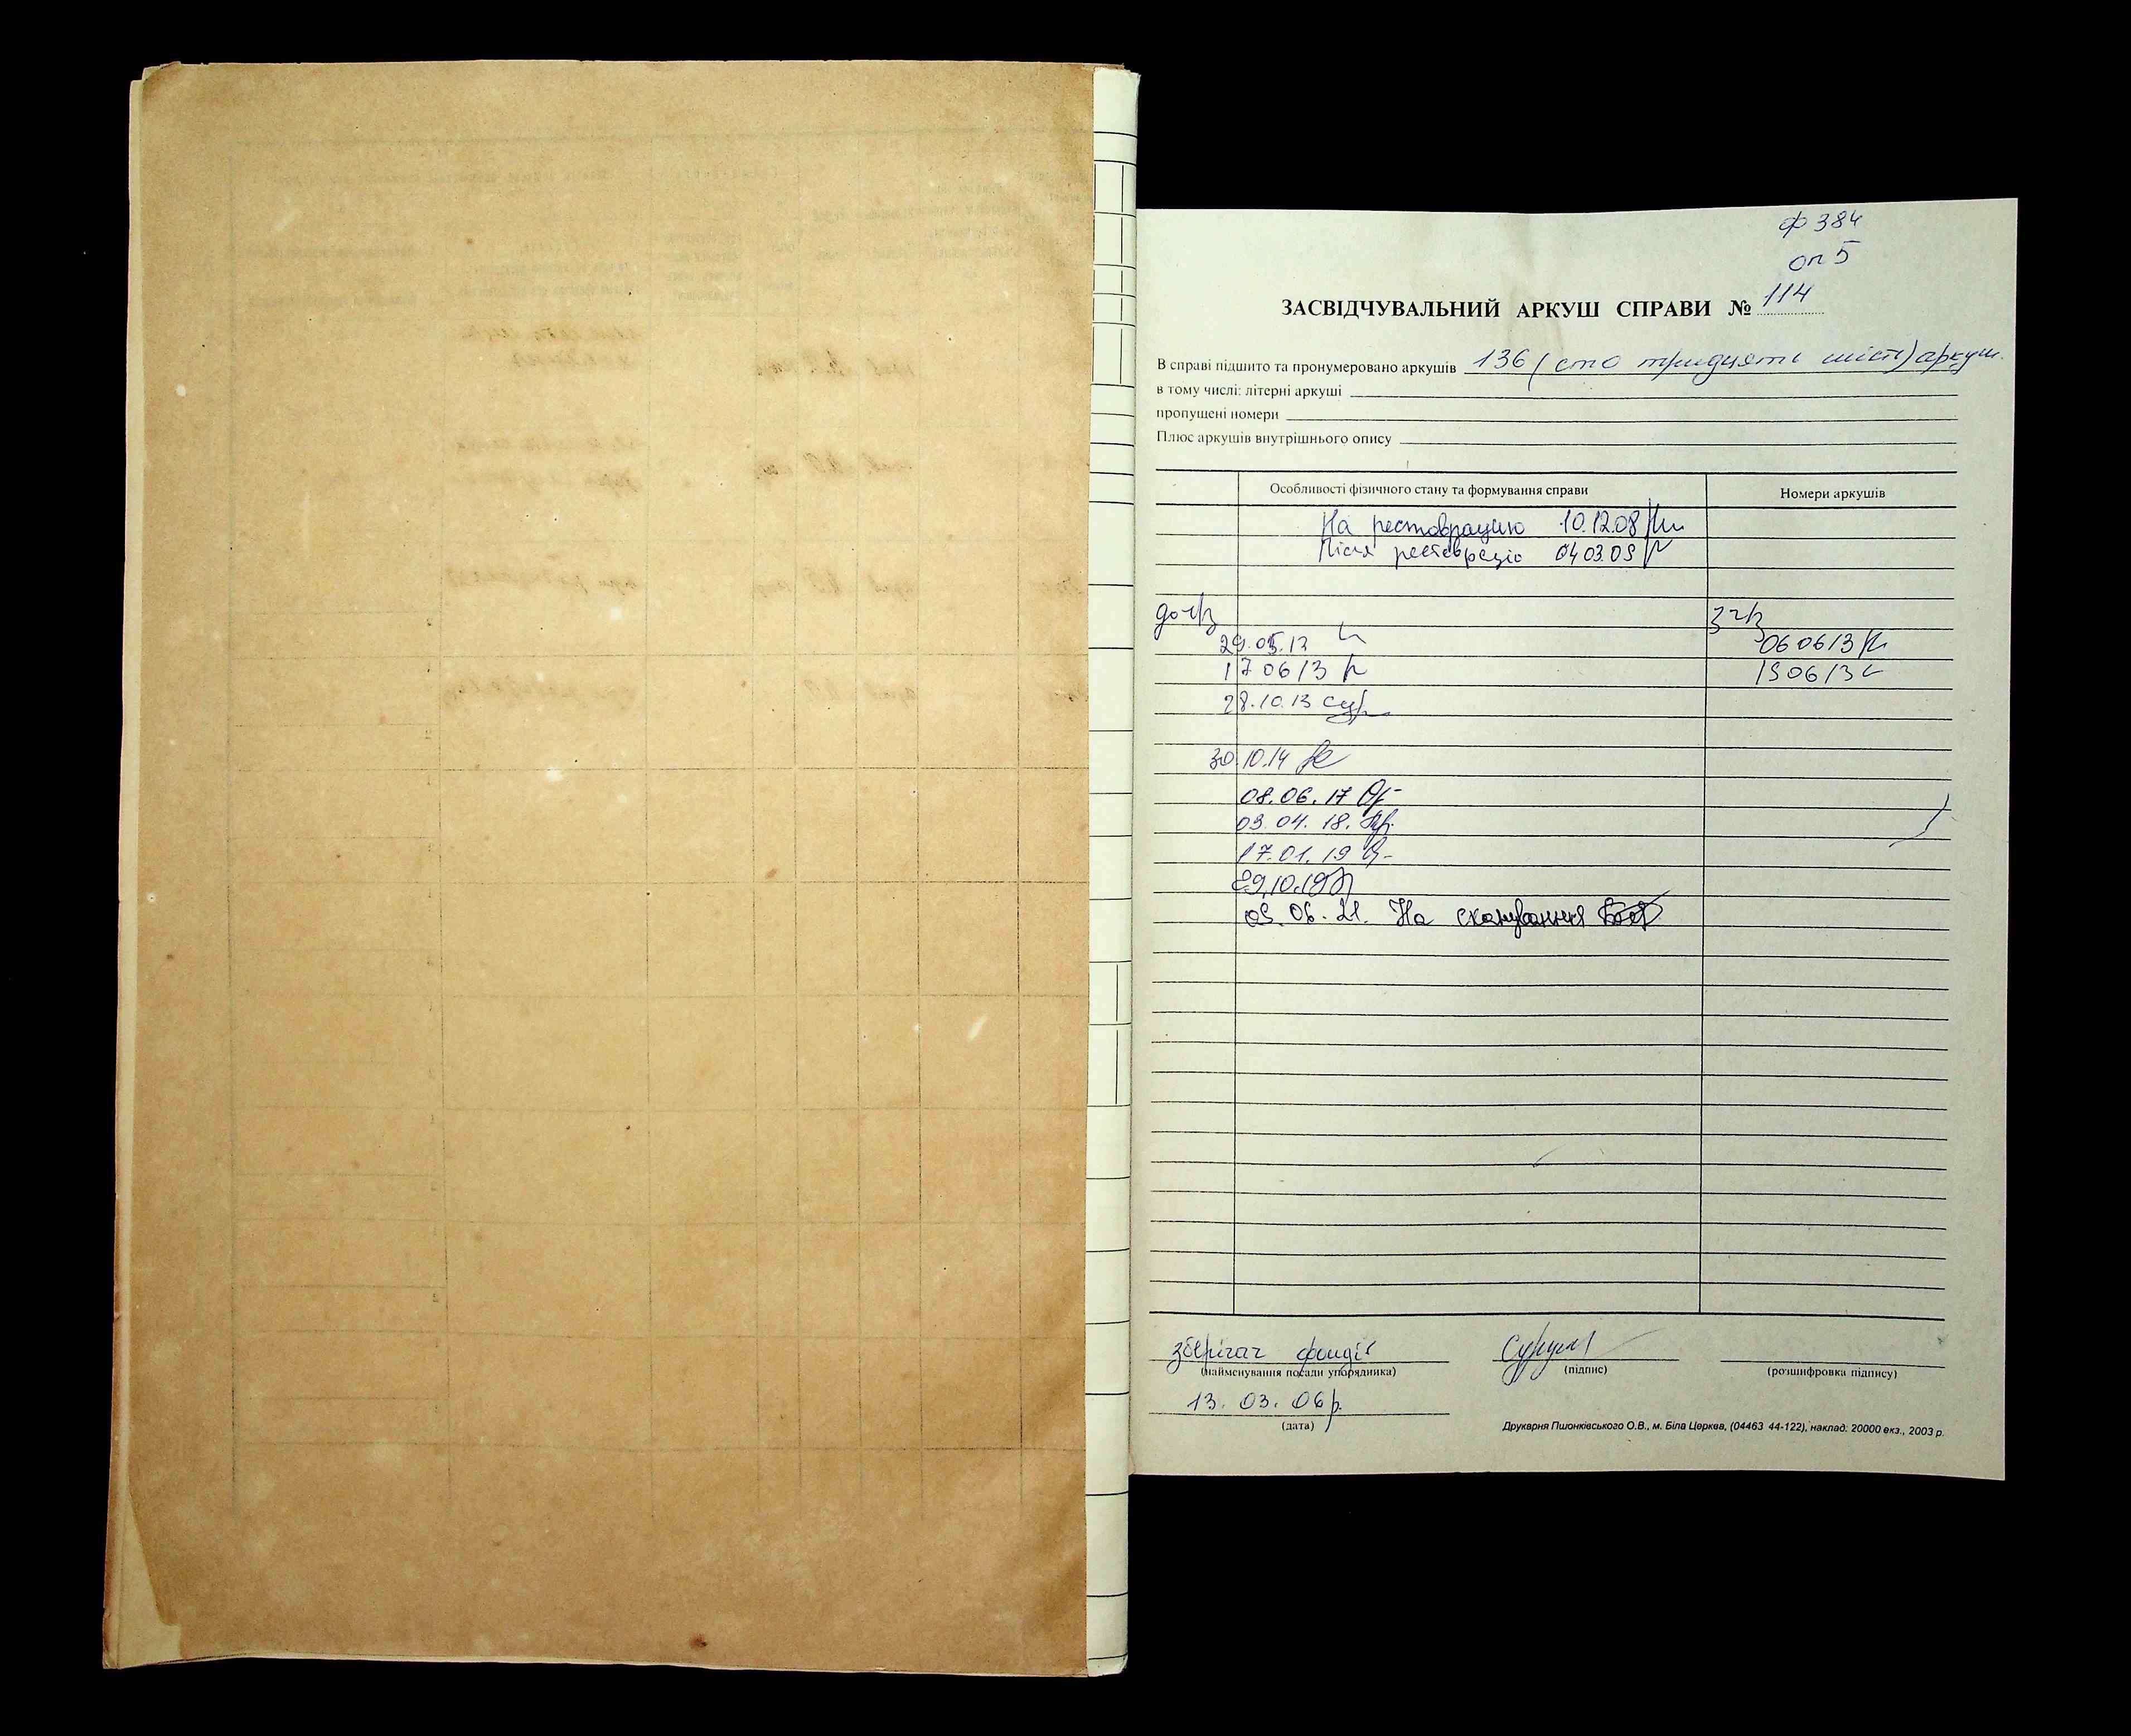 ф 384
оп 5
ЗАСВІДЧУВАЛЬНИЙ АРКУШ СПРАВИ № 114
В справі підшито та пронумеровано аркушів 136 (сто тридцять шість) аркуш.
в тому числі: літерні аркуші
пропущені номери
Плюс аркушів внутрішнього опису
Особливості фізичного стану та формування справи Номери аркушів
На реставрацію 10.12.08
Після реставраціє 04 03.09
до ч/з з ч/з
29.05.13 06 06 13
17 06 13 19 06 13
28.10.13
30.10.14
08.06.17
03.04.18.
17.01.19
29.10.19
09.06.21. На сканування
зберігач фондів
(найменування посади упорядника) (підпис) (розшифровка підпису)
13. 03. 06р.
(дата)
Друкарня Пшонківського О.В., м. Біла Церква, (04463 44-122), наклад: 20000 екз., 2003 р.